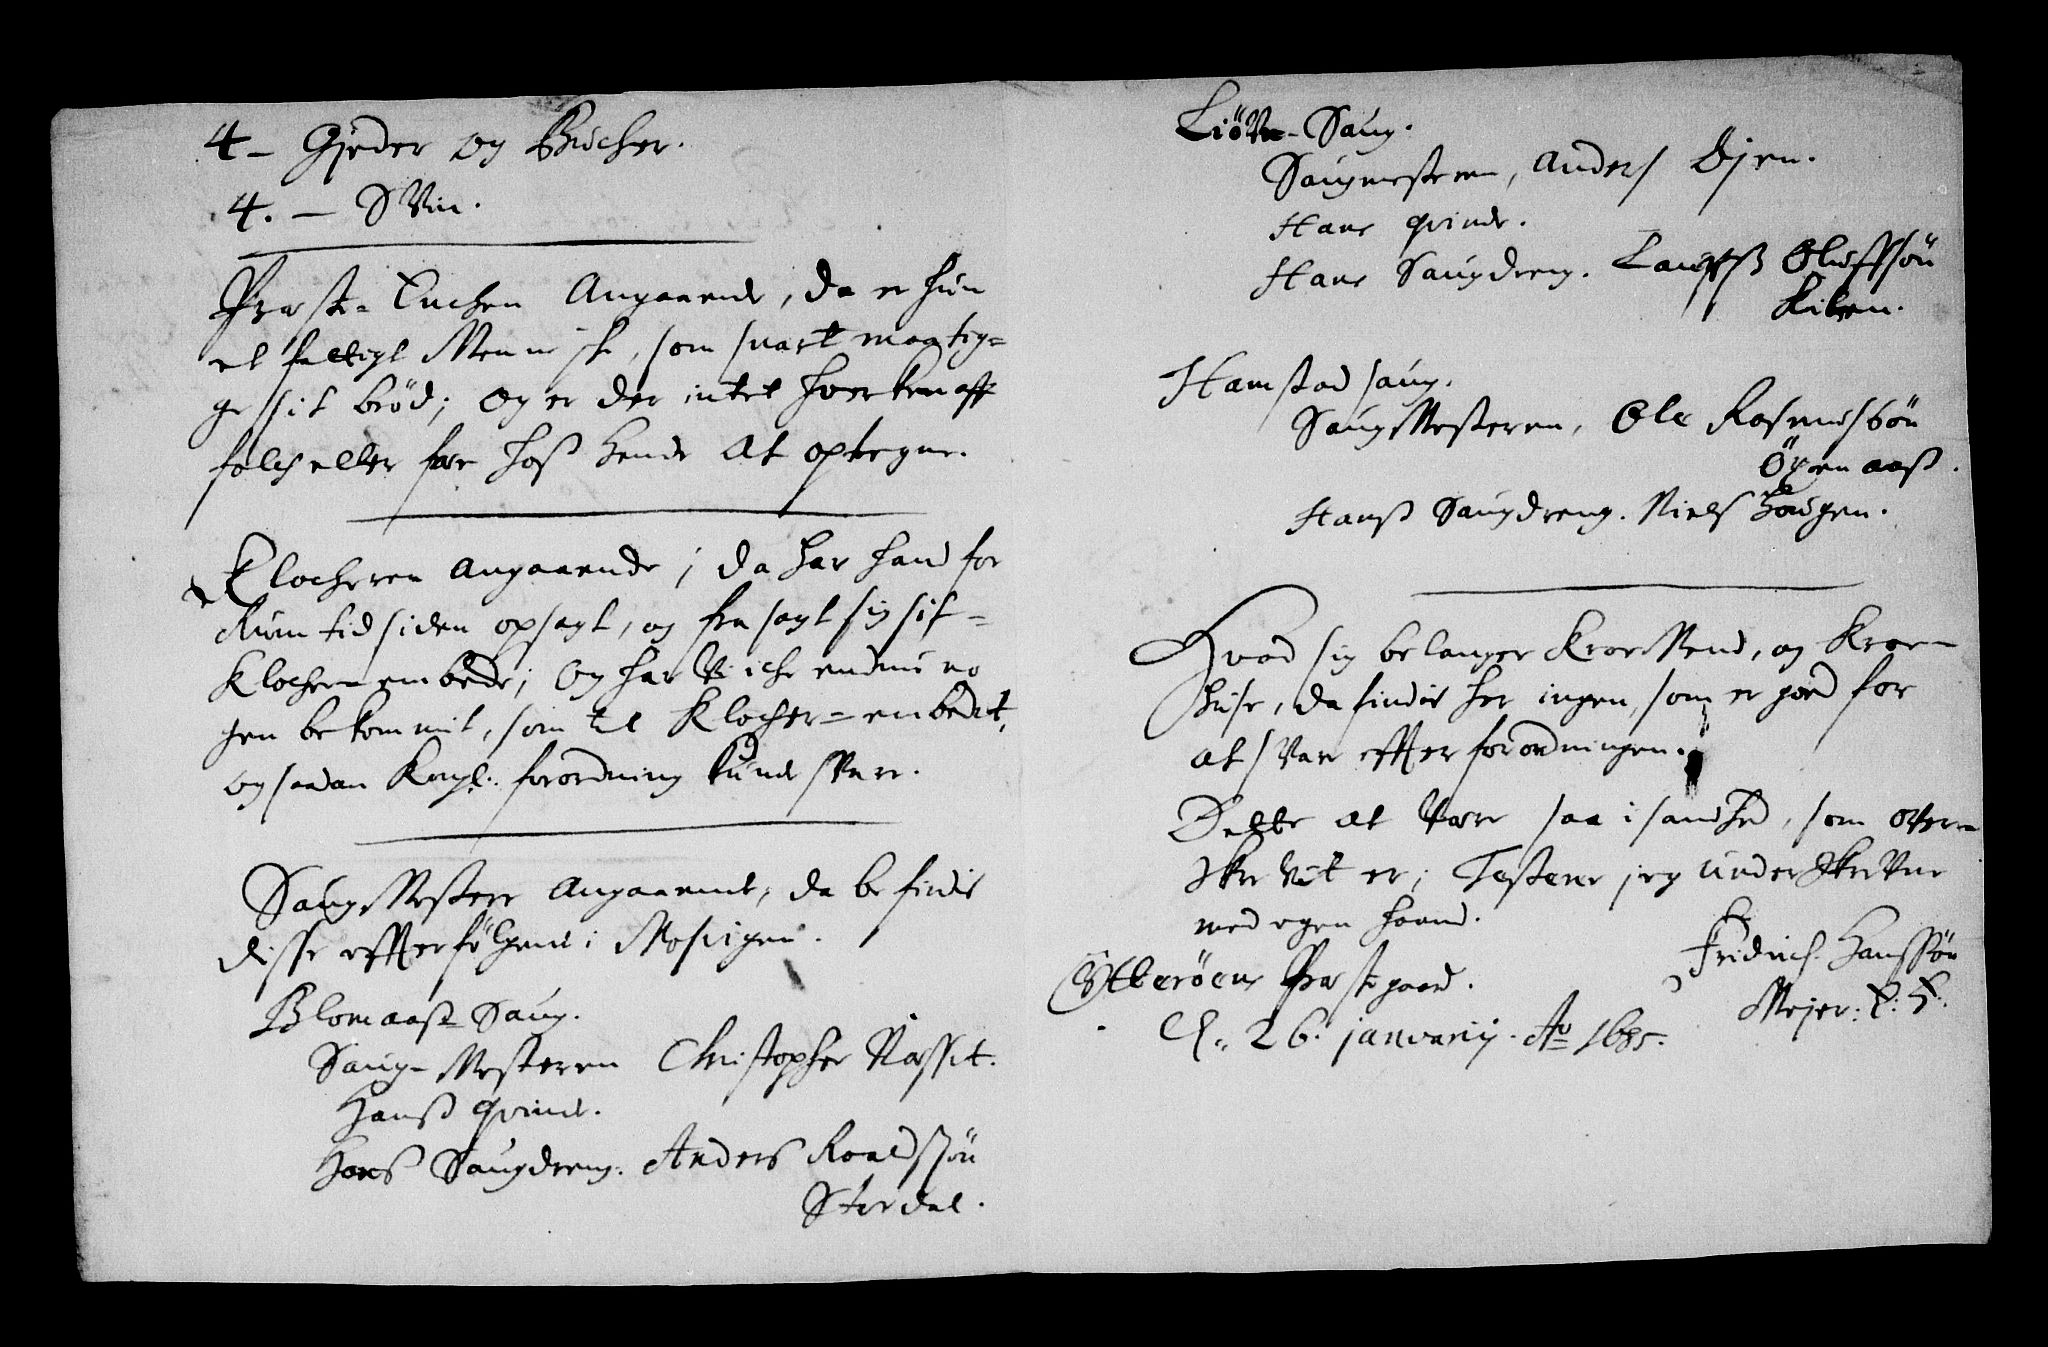 4 - Gjeder og Bucher.
4. - SVin.
Præste-Enchen Angaaende, da er hun
et fattigt Menniske, som svart maa tig=
ge sit brød; og er der intet hverken aff
folch eller fæe hoß hende At optegne.
Klocheren angaaende; da har hand for
Rum tid siden opsagt, og fra sagt sig sit=
Klocher-embede; og har Vi iche endnu no
gen bekommit, som til Klocher=embedet,
og saadan Kongl. forordning kunde sVare.
Saug-Mestere Angaaende, da befindis
disse effterfølgende i Mosvigen.
Blomaaß-Saug.
Saug-Mesteren Christopher Næsset.
Hanß qvinde.
Hans Saugdreng. Anders Roaldssøn
Stordal.
Liøen-Saug.
Saugmesteren, Anders Øjen.
Hans qvinde.
Hans Saugdreng. Lauritß Oluffsøn
Hamstad saug.
SaugMesteren, Ole Rasmusßøn
Hanß Saugdreng. Niels Haugen.
Hvad sig belanger KroeMend, og Kroe-
huse, da findis her ingen, som er god for
at sVare effter forordningen.
Dette at Være saa i sandhed, som oVen
skreVit er; Testerer jeg underskreVne
med egen haand.
Ytterøens Præstegaard.
d. 26. januarij. Ao 1685.
Fridrich Hanssøn
Mejer: